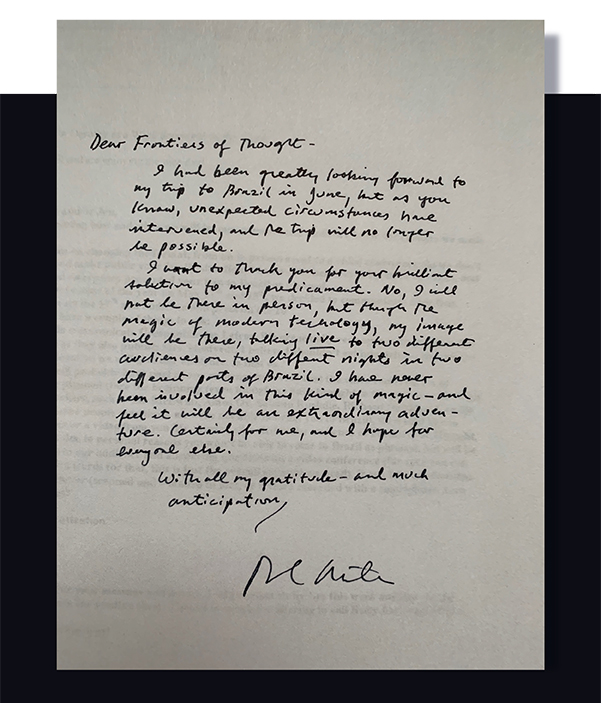 Dear Frontiers of Thought –
I had been greatly looking forward to
my trip to Brazil in June, but as you
know, unexpected circumstances have
intervened, and the trip will no longer
be possible.
I want to thank you for your brilliant
solution to my predicament. No, I will
not be there in person, but though the
magic of modern technology, my image
will be there, talking live to two different
audiences on two different nights in two
different parts of Brazil. I have never
been involved in this kind of magic – and
feel it will be an extraordinary adven-
ture. Certainly for me, and I hope for
everyone else.
With all my gratitude – and much
anticipation,